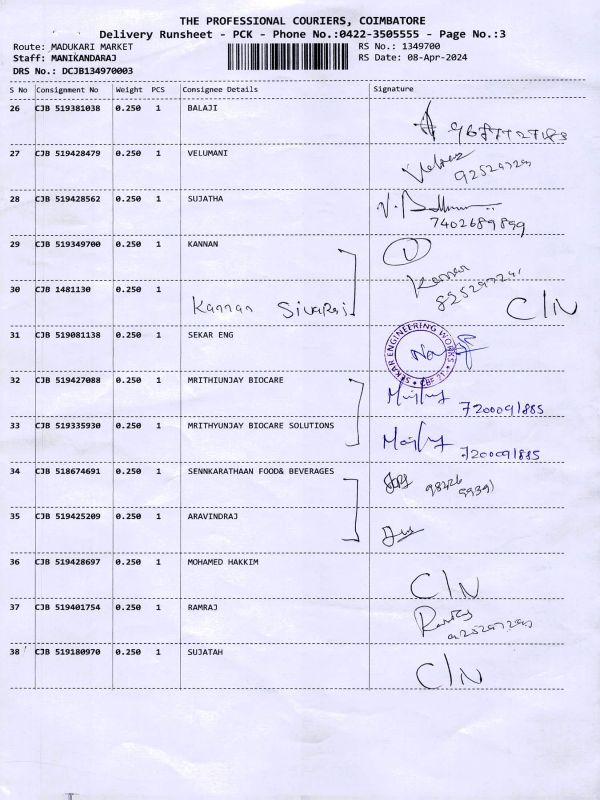 THE PROFESSIONAL COURIERS, COIMBATORE
Delivery Runsheet - PCK - Phone No.:0422-3505555 - Page No.:3
Route: MADUKARI MARKET
RS No.: 1349700
Staff: MANIKANDARAJ
RS Date: 08-Apr-2024
DRS No.: DCJB134970003
S No Consignment No Weight PCS Consignee Details Signature
26 CJB 519381038 0.250 1 BALAJI
27 CJB 519428479 0.250 1 VELUMANI
28 CJB 519428562 0.250 1 SUJATHA
7402689899
29 CJB 519349700 0.250 1 KANNAN
30 CJB 1481130 0.250 1
Kannan Sivaraj
C/N
31 CJB 519081138 0.250 1 SEKAR ENG
SEKAR ENGINEERING WORKS
CBE-21
32 CJB 519427088 0.250 1 MRITHIUNJAY BIOCARE
7200091885
33 CJB 519335930 0.250 1 MRITHYUNJAY BIOCARE SOLUTIONS
7200091885
34 CJB 518674691 0.250 1 SENNKARATHAAN FOOD& BEVERAGES
35 CJB 519425209 0.250 1 ARAVINDRAJ
36 CJB 519428697 0.250 1 MOHAMED HAKKIM
C/N
37 CJB 519401754 0.250 1 RAMRAJ
38 CJB 519180970 0.250 1 SUJATAH
C/N